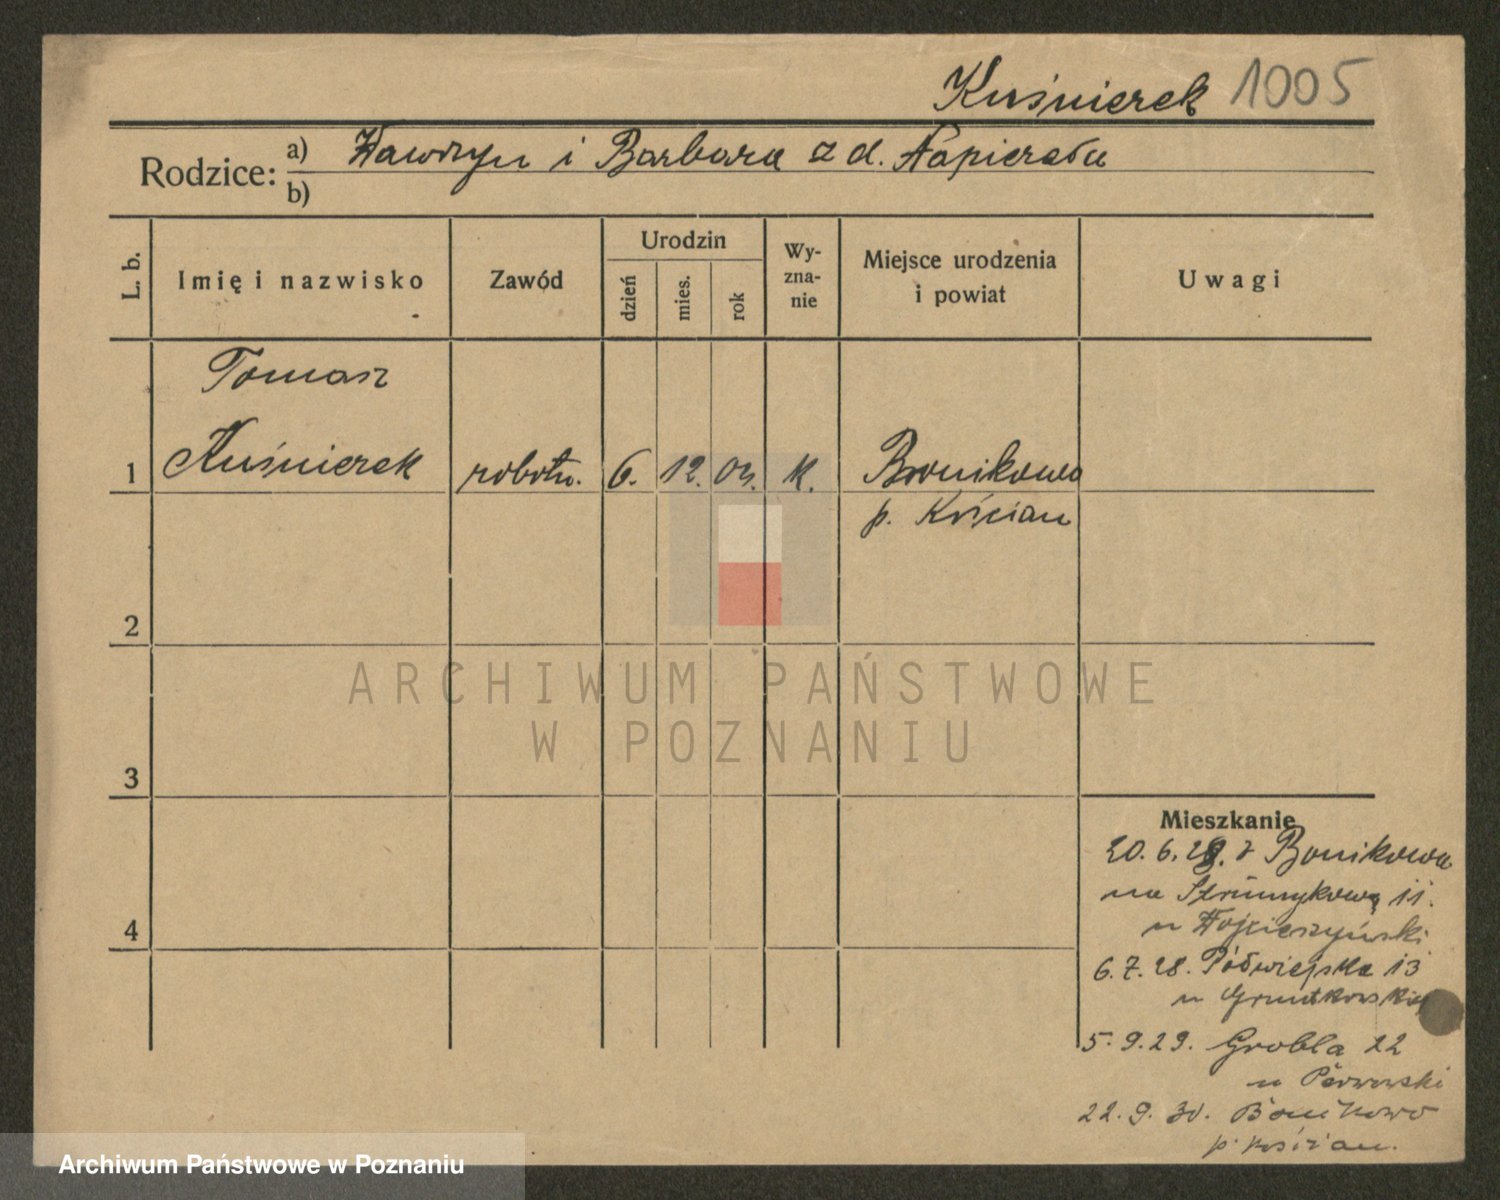 Kuśnierek 1005
Rodzice: a) Wawrzyn i Barbara z d. Napierała
b)
L. b.
Imię i nazwisko
Zawód
Urodzin
dzień
mies.
rok
Wy-
zna-
nie
Miejsce urodzenia
i powiat
Uwagi
Tomasz
1 Kuśnierek robotn. 6. 12. 04. k. Bronikowo
p. Kościan
2
3
4
ARCHIWUM PAŃSTWOWE
W POZNANIU
Mieszkanie
20. 6. 28. z Bonikowa
na Strumykową 11.
u Wojcieszyński
6. 7. 28. Półwiejska 13
u
5. 9. 29. Grobla 22
u
22. 9. 30. Bonikowo
p. Kościan.
Archiwum Państwowe w Poznaniu